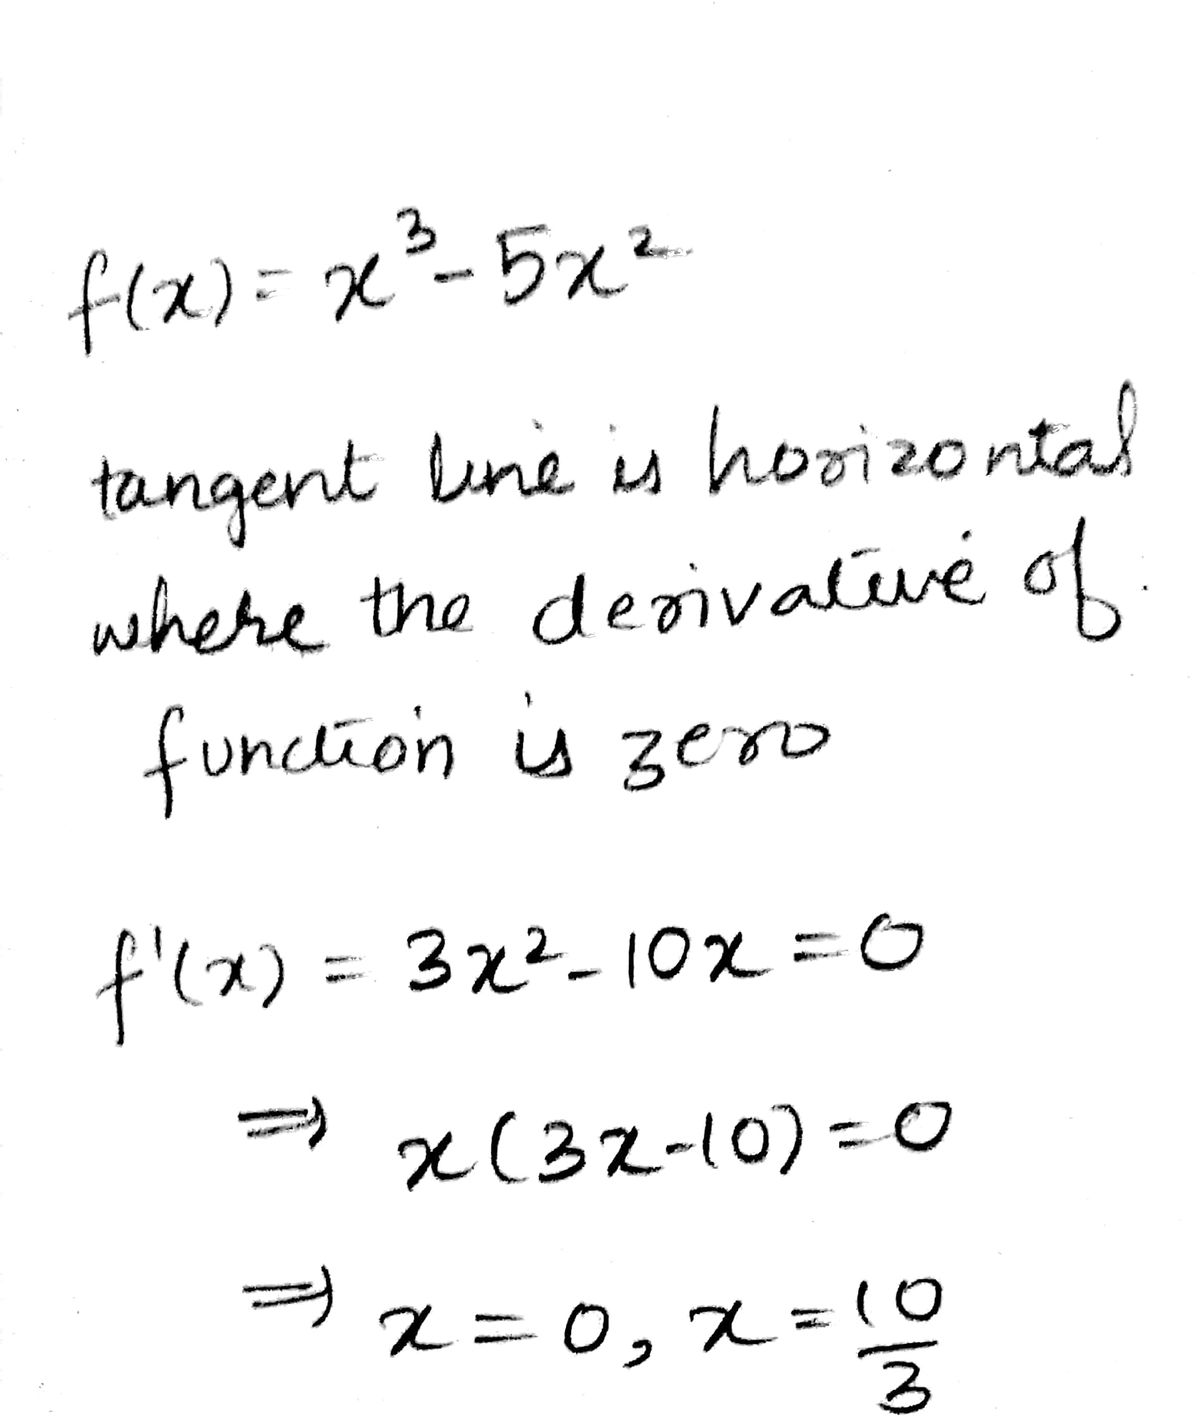 f(x) = x³ - 5x²
tangent line is horizontal
where the derivative of
function is zero
f'(x) = 3x² - 10x = 0
⇒ x(3x-10) = 0
⇒ x = 0, x = 10/3